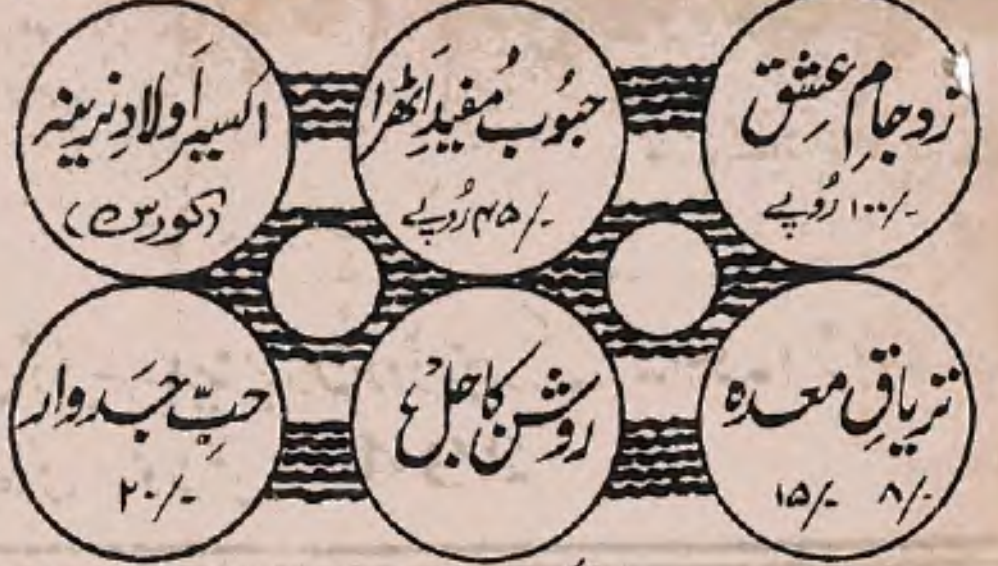 زدجامِ عشق
۱۰۰/- رُوپے
حبُوبُ مفیدِ اَٹھرا
۴۵/- رُوپے
اکسیرِ اَولادِ نرینہ
(کورس)
تریاقِ معدہ
۸/- ۱۵/-
روشن کاجل
حبِّ جَدوار
۲۰/-